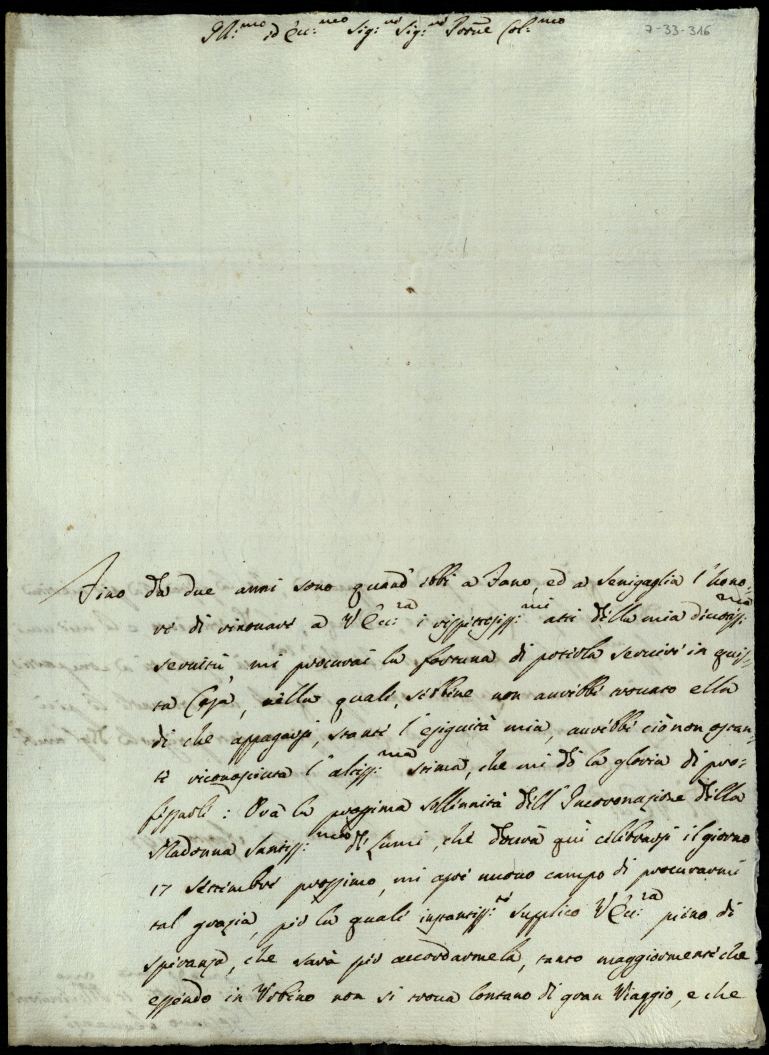 Ill:mo ed Ecc:mo Sig:re Sig:re Pröne Col:mo
7-33-316
Fino da due anni sono quand'ebbi a Fano, ed a Senigaglia l'hono-
re di rinovare a V Ecc:za i rispettosiss:mi atti della mia divotiss:ma
servitù mi procurai la fortuna di poterla servire in ques-
ta Casa, nella quale, sebbene non avrebbe trovato ella
di che appagarsi, stante l'esiguità mia, avrebbe ciò non ostan-
te riconosciuta l'altiss:ma stima, che mi dò la gloria di pro-
fessarle: Ora la prossima sollennità dell'Incoronazione della
Madonna Santiss:ma de Lumi, che dovrà quì celebrarsi il giorno
17 Settembre prossimo, mi apre nuovo campo di procurarmi
tal grazia, per la quale instantiss:te supplico V Ecc:za pieno di
speranza, che sarà per accordarmela, tanto maggiormente che
essendo in Urbino non si trova lontano di gran Viaggio, e che